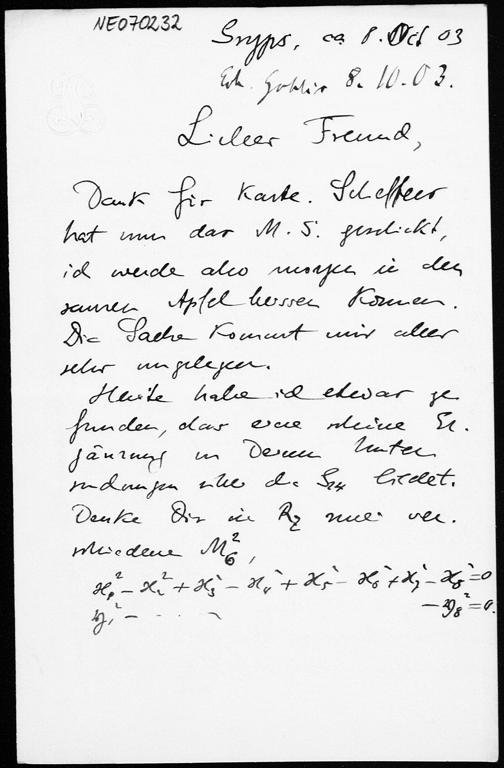 NE070232
Gryps, ca 8. Oct 03
Erh. 8. 10. 03.
Lieber Freund,
Dank für Karte. Scheffers
hat nun das M. S. geschickt,
ich werde also morgen in den
sauren Apfel beissen können.
Die Sache kommt mir aber
sehr ungelegen.
Heute habe ich etwas ge
funden, das eine schöne Er-
gänzung zu Deinen Unter
suchungen über die bildet.
Denke Dir in R7 zwei ver-
schiedene M6^2,
x1^2 - x2^2 + x3^2 - x4^2 + x5^2 - x6^2 + x7^2 - x8^2 = 0
y1^2 - . . . . - y8^2 = 0.